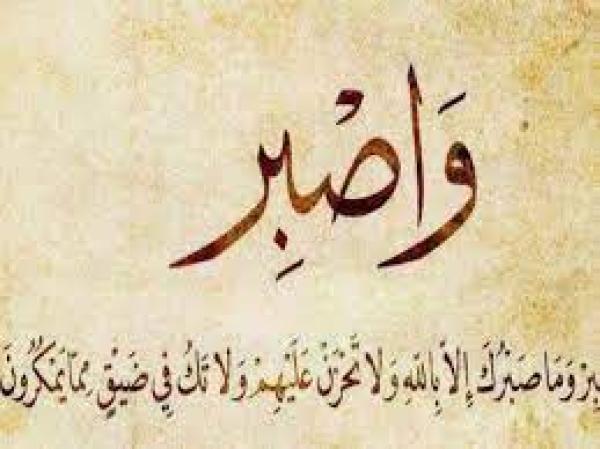 وَاصْبِر
وَمَا صَبْرُكَ إِلاَّ بِاللَّهِ وَلاَ تَحْزَنْ عَلَيْهِمْ وَلاَ تَكُ فِي ضَيْقٍ مِمَّا يَمْكُرُونَ